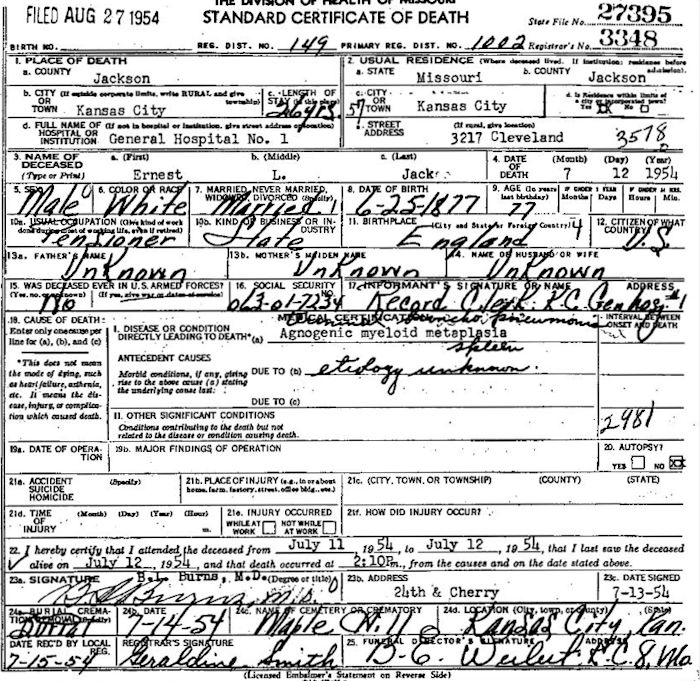 THE DIVISION OF HEALTH OF MISSOURI
FILED AUG 27 1954 STANDARD CERTIFICATE OF DEATH State File No. 27395
BIRTH NO. REG. DIST. NO. 149 PRIMARY REG. DIST. NO. 1002 Registrar's No. 3348
1. PLACE OF DEATH 2. USUAL RESIDENCE (Where deceased lived. If institution: residence before admission).
a. COUNTY Jackson a. STATE Missouri b. COUNTY Jackson
b. CITY (If outside corporate limits, write RURAL and give township) OR TOWN Kansas City c. LENGTH OF STAY (in this place) 26yrs. c. CITY OR TOWN 57 Kansas City d. Is Residence within limits of a city or incorporated town? Yes No
d. FULL NAME OF (If not in hospital or institution, give street address or location) HOSPITAL OR INSTITUTION General Hospital No. 1 STREET ADDRESS (If rural, give location) 3217 Cleveland 3578
3. NAME OF DECEASED (Type or Print) a. (First) Ernest b. (Middle) L. c. (Last) Jack 4. DATE OF DEATH (Month) (Day) (Year) 7 12 1954
5. SEX Male 6. COLOR OR RACE White 7. MARRIED, NEVER MARRIED, WIDOWED, DIVORCED (Specify) Married 8. DATE OF BIRTH 6-25-1877 9. AGE (In years last birthday) 77 IF UNDER 1 YEAR Months Days IF UNDER 24 HRS. Hours Min.
10a. USUAL OCCUPATION (Give kind of work done during most of working life, even if retired) Pensioner 10b. KIND OF BUSINESS OR INDUSTRY State 11. BIRTHPLACE (City and State or Foreign Country) England 4 12. CITIZEN OF WHAT COUNTRY? U.S
13a. FATHER'S NAME UnKnown 13b. MOTHER'S MAIDEN NAME UnKnown 14. NAME OF HUSBAND OR WIFE UnKnown
15. WAS DECEASED EVER IN U.S. ARMED FORCES? (Yes, no, or unknown) (If yes, give war or dates of service) No 16. SOCIAL SECURITY NO. 063-01-7234 17. INFORMANT'S SIGNATURE OR NAME ADDRESS Record Clerk K.C. Gen hosp #1
18. CAUSE OF DEATH MEDICAL CERTIFICATION Terminal bronchopneumonia INTERVAL BETWEEN ONSET AND DEATH
Enter only one cause per line for (a), (b), and (c) I. DISEASE OR CONDITION DIRECTLY LEADING TO DEATH*(a) Agnogenic myeloid metaplasia
spleen
*This does not mean the mode of dying, such as heart failure, asthenia, etc. It means the disease, injury, or complication which caused death. ANTECEDENT CAUSES
Morbid conditions, if any, giving rise to the above cause (a) stating the underlying cause last. DUE TO (b) etiology unknown.
DUE TO (c)
II. OTHER SIGNIFICANT CONDITIONS 2981
Conditions contributing to the death but not related to the disease or condition causing death.
19a. DATE OF OPERATION 19b. MAJOR FINDINGS OF OPERATION 20. AUTOPSY? YES NO XX
21a. ACCIDENT SUICIDE HOMICIDE (Specify) 21b. PLACE OF INJURY (e.g., in or about home, farm, factory, street, office bldg., etc.) 21c. (CITY, TOWN, OR TOWNSHIP) (COUNTY) (STATE)
21d. TIME OF INJURY (Month) (Day) (Year) (Hour) m. 21e. INJURY OCCURRED WHILE AT WORK NOT WHILE AT WORK 21f. HOW DID INJURY OCCUR?
22. I hereby certify that I attended the deceased from July 11, 1954, to July 12, 1954, that I last saw the deceased
alive on July 12, 1954, and that death occurred at 2:10P m., from the causes and on the date stated above.
23a. SIGNATURE B.L. Burns, M.D. (Degree or title) 23b. ADDRESS 24th & Cherry 23c. DATE SIGNED 7-13-54
24a. BURIAL, CREMATION, REMOVAL (Specify) Burial 24b. DATE 7-14-54 24c. NAME OF CEMETERY OR CREMATORY Maple Hill 24d. LOCATION (City, town, or county) (State) Kansas City, Kan.
DATE REC'D BY LOCAL REG. 7-15-54 REGISTRAR'S SIGNATURE Geraldine Smith 25. FUNERAL DIRECTOR'S SIGNATURE ADDRESS B-C. Weilert K.C. 8, Mo
(Licensed Embalmer's Statement on Reverse Side)